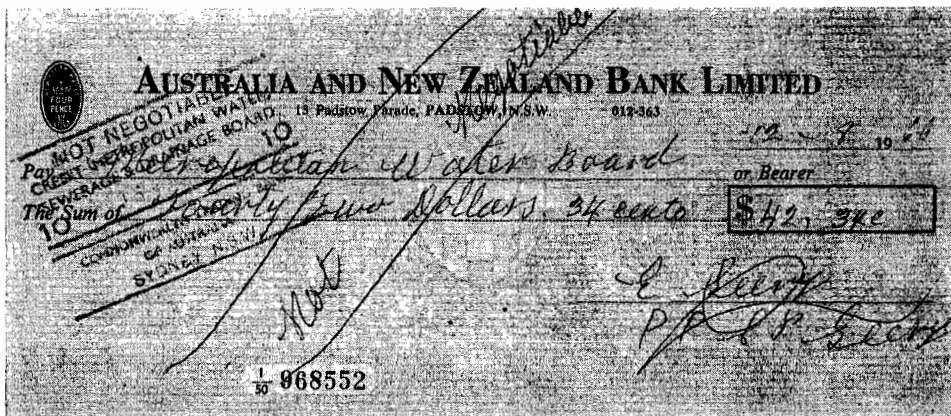 AUSTRALIA AND NEW ZEALAND BANK LIMITED
FOUR
PENCE
13 Padstow Parade, PADSTOW, N.S.W. 012-363
NOT NEGOTIABLE
CREDIT METROPOLITAN WATER
SEWERAGE & DRAINAGE BOARD.
10 10
COMMONWEALTH
OF AUSTRALIA
SYDNEY N.S.W.
Not Negotiable
12 - 19
Pay Metropolitan Water Board or Bearer
The Sum of Fourty Two Dollars. 34 cents $42, 34c
E
P.P.
1/50 968552